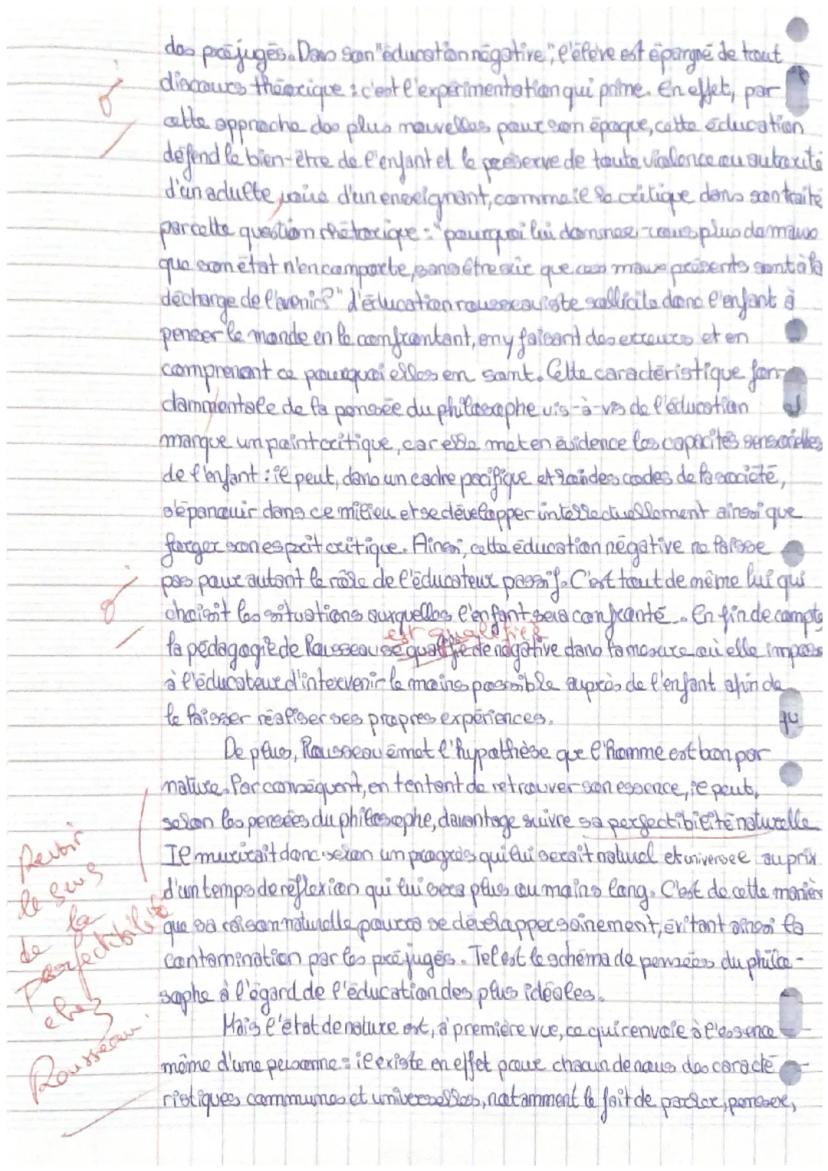 des préjugés. Dans son "éducation négative", l'élève est épargné de tout
discours théorique : c'est l'expérimentation qui prime. En effet, par
cette approche des plus nouvelles pour son époque, cette éducation
défend le bien-être de l'enfant et le préserve de toute violence ou autorité
d'un adulte, voire d'un enseignant, comme il le critique dans son traité
par cette question rhétorique : "pourquoi lui donner-vous plus de maux
que son état n'en comporte, sans être sûr que ces maux présents sont à la
décharge de l'avenir?" L'éducation rousseauiste sollicite donc l'enfant à
penser le monde en le confrontant, en y faisant des erreurs et en
comprenant ce pourquoi elles en sont. Cette caractéristique fon-
dammentale de la pensée du philosophe vis-à-vis de l'éducation
marque un point critique, car elle met en évidence les capacités sensorielles
de l'enfant : il peut, dans un cadre pacifique et loin des codes de la société,
s'épanouir dans ce milieu et se développer intellectuellement ainsi que
forger son esprit critique. Ainsi, cette éducation négative ne laisse
pas pour autant le rôle de l'éducateur passif. C'est tout de même lui qui
choisit les situations auxquelles l'enfant sera confronté. En fin de compte
est qualifiée
la pédagogie de Rousseau se qualifie de négative dans la mesure où elle impose
à l'éducateur d'intervenir le moins possible auprès de l'enfant afin de
le laisser réaliser ses propres expériences.
De plus, Rousseau émet l'hypothèse que l'homme est bon par
nature. Par conséquent, en tentant de retrouver son essence, il peut,
selon les pensées du philosophe, davantage suivre sa perfectibilité naturelle
Il mûrirait donc selon un progrès qui lui serait naturel et universel au prix
d'un temps de réflexion qui lui sera plus ou moins long. C'est de cette manière
que sa raison naturelle pourra se développer sainement, évitant ainsi la
contamination par les préjugés. Tel est le schéma de pensées du philo-
sophe à l'égard de l'éducation des plus idéales.
Revoir
le sens
de la
perfectibilité
chez
Rousseau.
Mais l'état de nature est, à première vue, ce qui renvoie à l'essence
même d'une personne : il existe en effet pour chacun de nous des caracté
ristiques communes et universelles, notamment le fait de parler, penser,